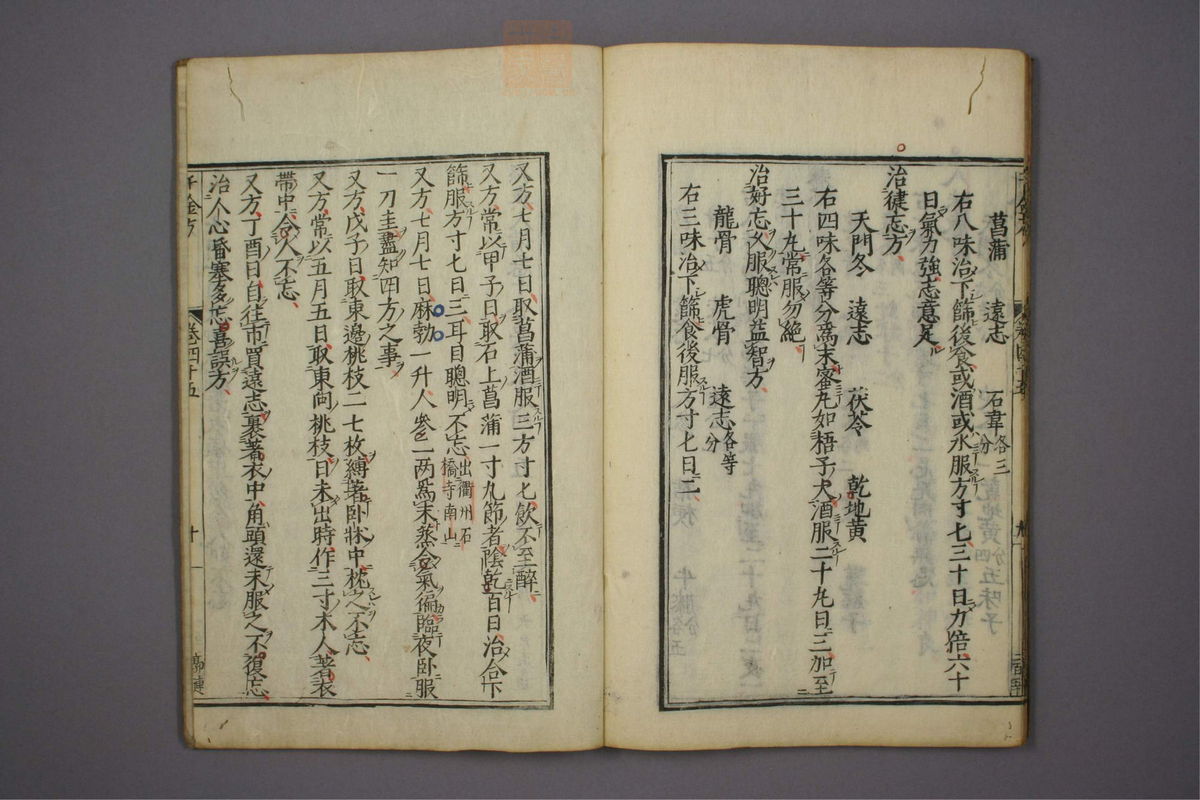 菖蒲　遠志　石韋各三分
右八味治下篩後食或酒或水服方寸匕三十日力倍六十
日氣力強志意足
治健忘方
天門冬　遠志　茯苓　乾地黃
右四味各等分爲末蜜丸如梧子大酒服二十丸日三加至
三十丸常服勿絶
治好忘久服聰明益智方
龍骨　虎骨　遠志各等分
右三味治下篩食後服方寸匕日二
又方七月七日取菖蒲酒服三方寸匕飲不至醉
又方常以甲子日取石上菖蒲一寸九節者陰乾百日治合下
篩服方寸匕日三耳目聰明不忘出衢州石橋寺南山
又方七月七日麻勃一升人參二兩爲末蒸令氣徧臨夜卧服
一刀圭盡知四方之事
又方戊子日取東邊桃枝二七枚縛著卧牀中枕之不忘
又方常以五月五日取東向桃枝日未出時作三寸木人著衣
帶中令人不忘
又方丁酉日自往市買遠志裹著衣中角頭還末服之不復忘
治人心昏塞多忘喜誤方
千金方
卷四十五
十一